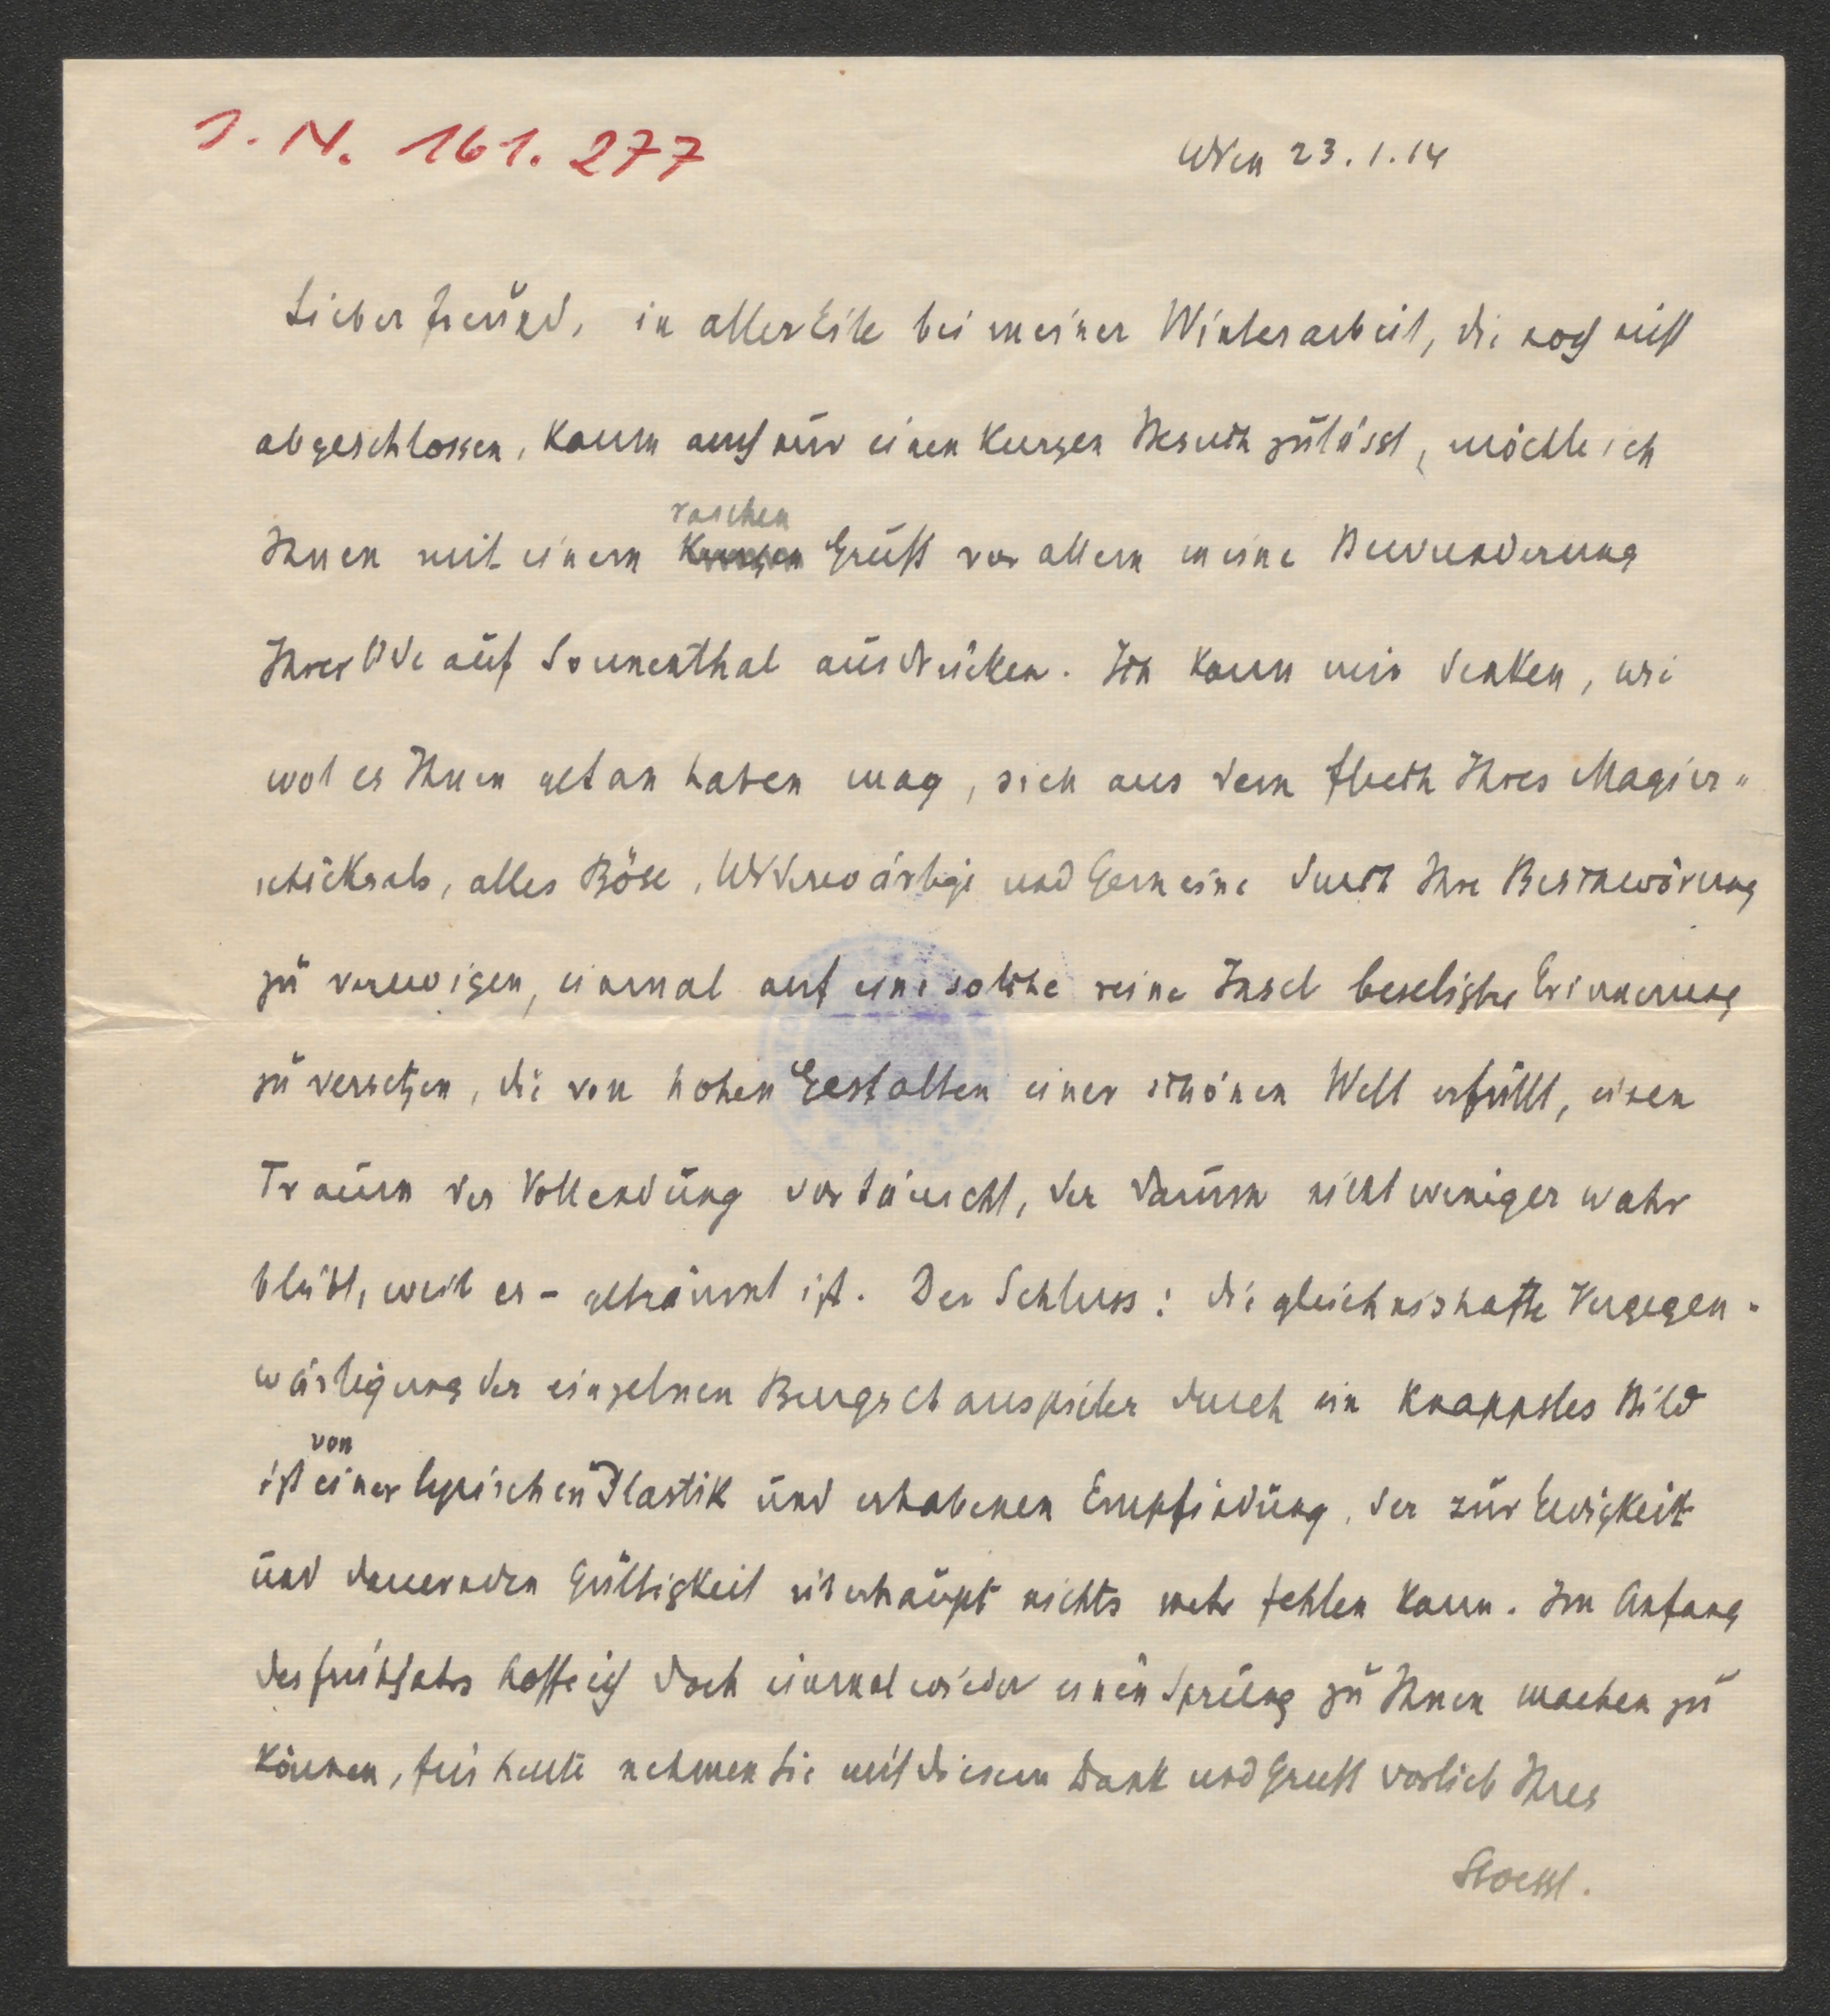 I. N. 161.277
Wien 23.1.14
Lieber Freund, in aller Eile bei meiner Winterarbeit, die noch nicht
abgeschlossen, kaum auch nur einen kurzen Besuch zulässt, möchte ich
Ihnen mit einem kurzen raschen Gruß vor allem meine Bewunderung
Ihrer Ode auf Sonnenthal ausdrücken. Ich kann mir denken, wie
wol es Ihnen getan haben mag, sich aus dem Fluch Ihres Magier-
schicksals, alles Böse, Widerwärtige und Gemeine durch Ihre Beschwörung
zu verewigen, einmal auf eine solche reine Insel beseligter Erinnerung
zu versetzen, die von hohen Gestalten einer schönen Welt erfüllt, einen
Traum der Vollendung vortäuscht, der darum nicht weniger wahr
bleibt, weil er – geträumt ist. Der Schluss: die gleichnishafte Vergegen-
wärtigung der einzelnen Burgschauspieler durch ein knappstes Bild
ist von einer lyrischen Plastik und erhabenen Empfindung, der zur Ewigkeit
und dauernden Gültigkeit überhaupt nichts mehr fehlen kann. Im Anfang
des Frühjahrs hoffe ich doch einmal wieder einen Sprung zu Ihnen machen zu
können, für heute nehmen Sie mit diesem Dank und Gruß vorlieb Ihres
Stoessl.